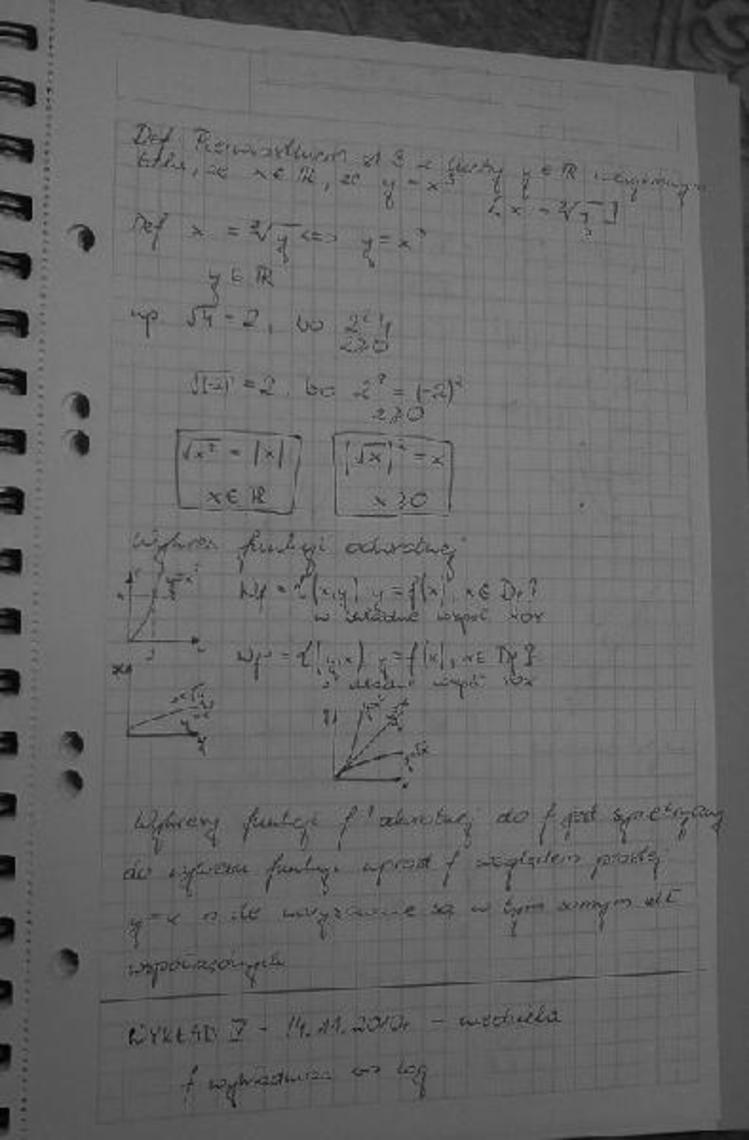 Def Pierwiastkiem st 3 z liczby y ∈ ℝ nazywamy
x ∈ ℝ, że y = x³
[x = ∛y]
Def x = ∛y <=> y = x³
y ∈ ℝ
np. √4 = 2, bo 2² = 4
2 ≥ 0
√(-2)² = 2, bo 2² = (-2)²
2 ≥ 0
√x² = |x| (√x)² = x
x ∈ ℝ x ≥ 0
Wykres funkcji odwrotnej
Wf = {(x,y) y = f(x), x ∈ Df}
w układzie współ xoy
Wf⁻¹ = {(y,x) y = f(x), x ∈ Df}
układzie współ
Wykresy funkcji f⁻¹ odwrotnej do f jest symetryczny
do wykresu funkcji wprost f względem prostej
y = x są w tym samym ukł
współrzędnych
WYKŁAD V - 14.11.2010r - niedziela
f wykładnicza log